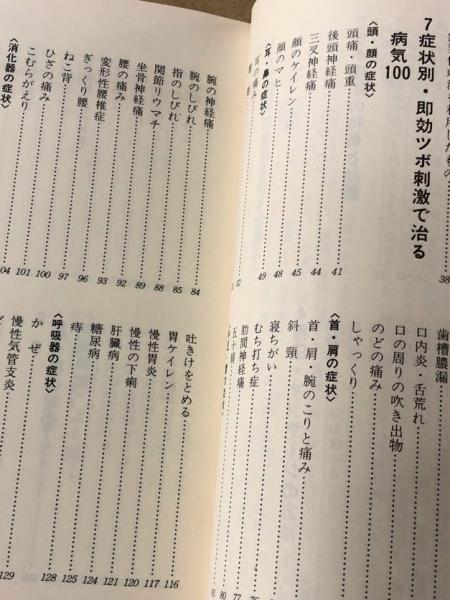 利用したもの……38
7 症状別・即効ツボ刺激で治る
病気100
〈頭・顔の症状〉
頭痛・頭重……41
後頭神経痛……44
三叉神経痛……45
顔のケイレン……48
顔のマヒ……49
〈耳・鼻の症状〉
52
歯槽膿漏……
口内炎・舌荒れ……
口の周りの吹き出物……
のどの痛み……
しゃっくり……
〈首・肩の症状〉
首・肩・腕のこりと痛み……
斜頸……
寝ちがい……
むち打ち症……76
肋間神経痛……77
五十肩……80
腕の神経痛……84
腕のしびれ……85
指のしびれ……86
関節リウマチ……88
坐骨神経痛……89
腰の痛み……92
変形性腰椎症……93
ぎっくり腰……96
ねこ背……97
ひざの痛み……100
こむらがえり……101
〈消化器の症状〉
104
吐きけをとめる……
胃ケイレン……116
慢性胃炎……117
慢性の下痢……120
肝臓病……121
糖尿病……124
痔……125
〈呼吸器の症状〉
かぜ……128
慢性気管支炎……129